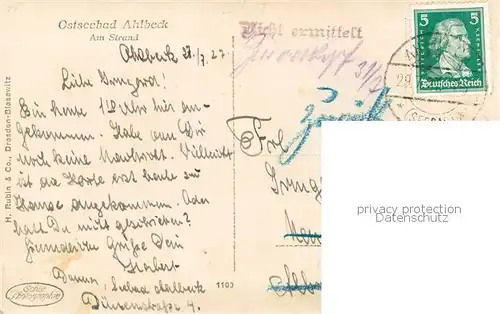 Ostseebad Ahlbeck
Am Strand
Ahlbeck 28/7.27.
Liebe Irmgard!
Bin heute 1 Uhr hier an-
gekommen. Habe von Dir
noch keine Nachricht. Vielleicht
ist die Karte erst heute zu
Hause angekommen. Oder
hast Du nicht geschrieben?
Grüße Dein
Herbert
Ahlbeck
Dünenstraße 4.
H. Rubin & Co., Dresden-Blasewitz
Echte Photographie
1103
Nicht ermittelt
31/7
Zurück
Frl.
Irmg
5 5
Deutsches Reich
privacy protection
Datenschutz